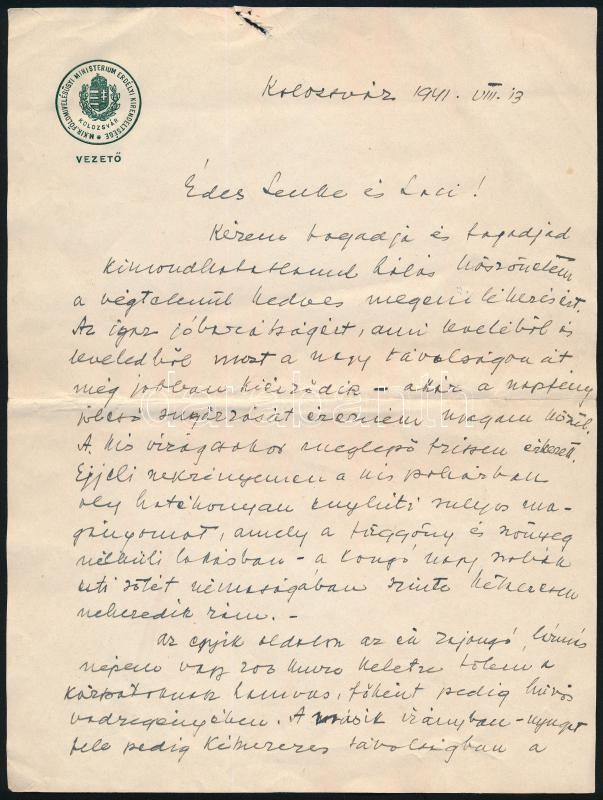 M. KIR. FÖLDMIVELÉSÜGYI MINISTERIUM ERDÉLYI KIRENDELTSÉGE
KOLOZSVÁR
VEZETŐ
Kolozsvár 1941. VIII. 13
Édes Lenke és Laci!
Kérem fogadja és fogadjad
kimondhatatlanul hálás köszönetem
a végtelenül kedves megemlékezésért.
Az igaz jóbarátságért, ami levelébből és
leveledből most a nagy távolságon át
még jobban kiérződik – akár a napfény
sugárzását érezném magam körül.
A kis virágcsokor meglepő frissen érkezett.
Éjjeli szekrényemen a kis pohárban
oly hatékonyan enyhíti sulyos ma-
gányomat, amely a függöny és szőnyeg
nélküli lakásban – a kongó nagy szobák
esti sötét némaságában szinte kétszeresen
nehezedik rám. –
Az egyik oldalon az én zajongó, lármás
népem vagy 200 km keletre tőlem a
Kárpátoknak hamvas, főként pedig hűvös
vadregényében. A másik irányban – nyugat
fele pedig kétszeres távolságban a